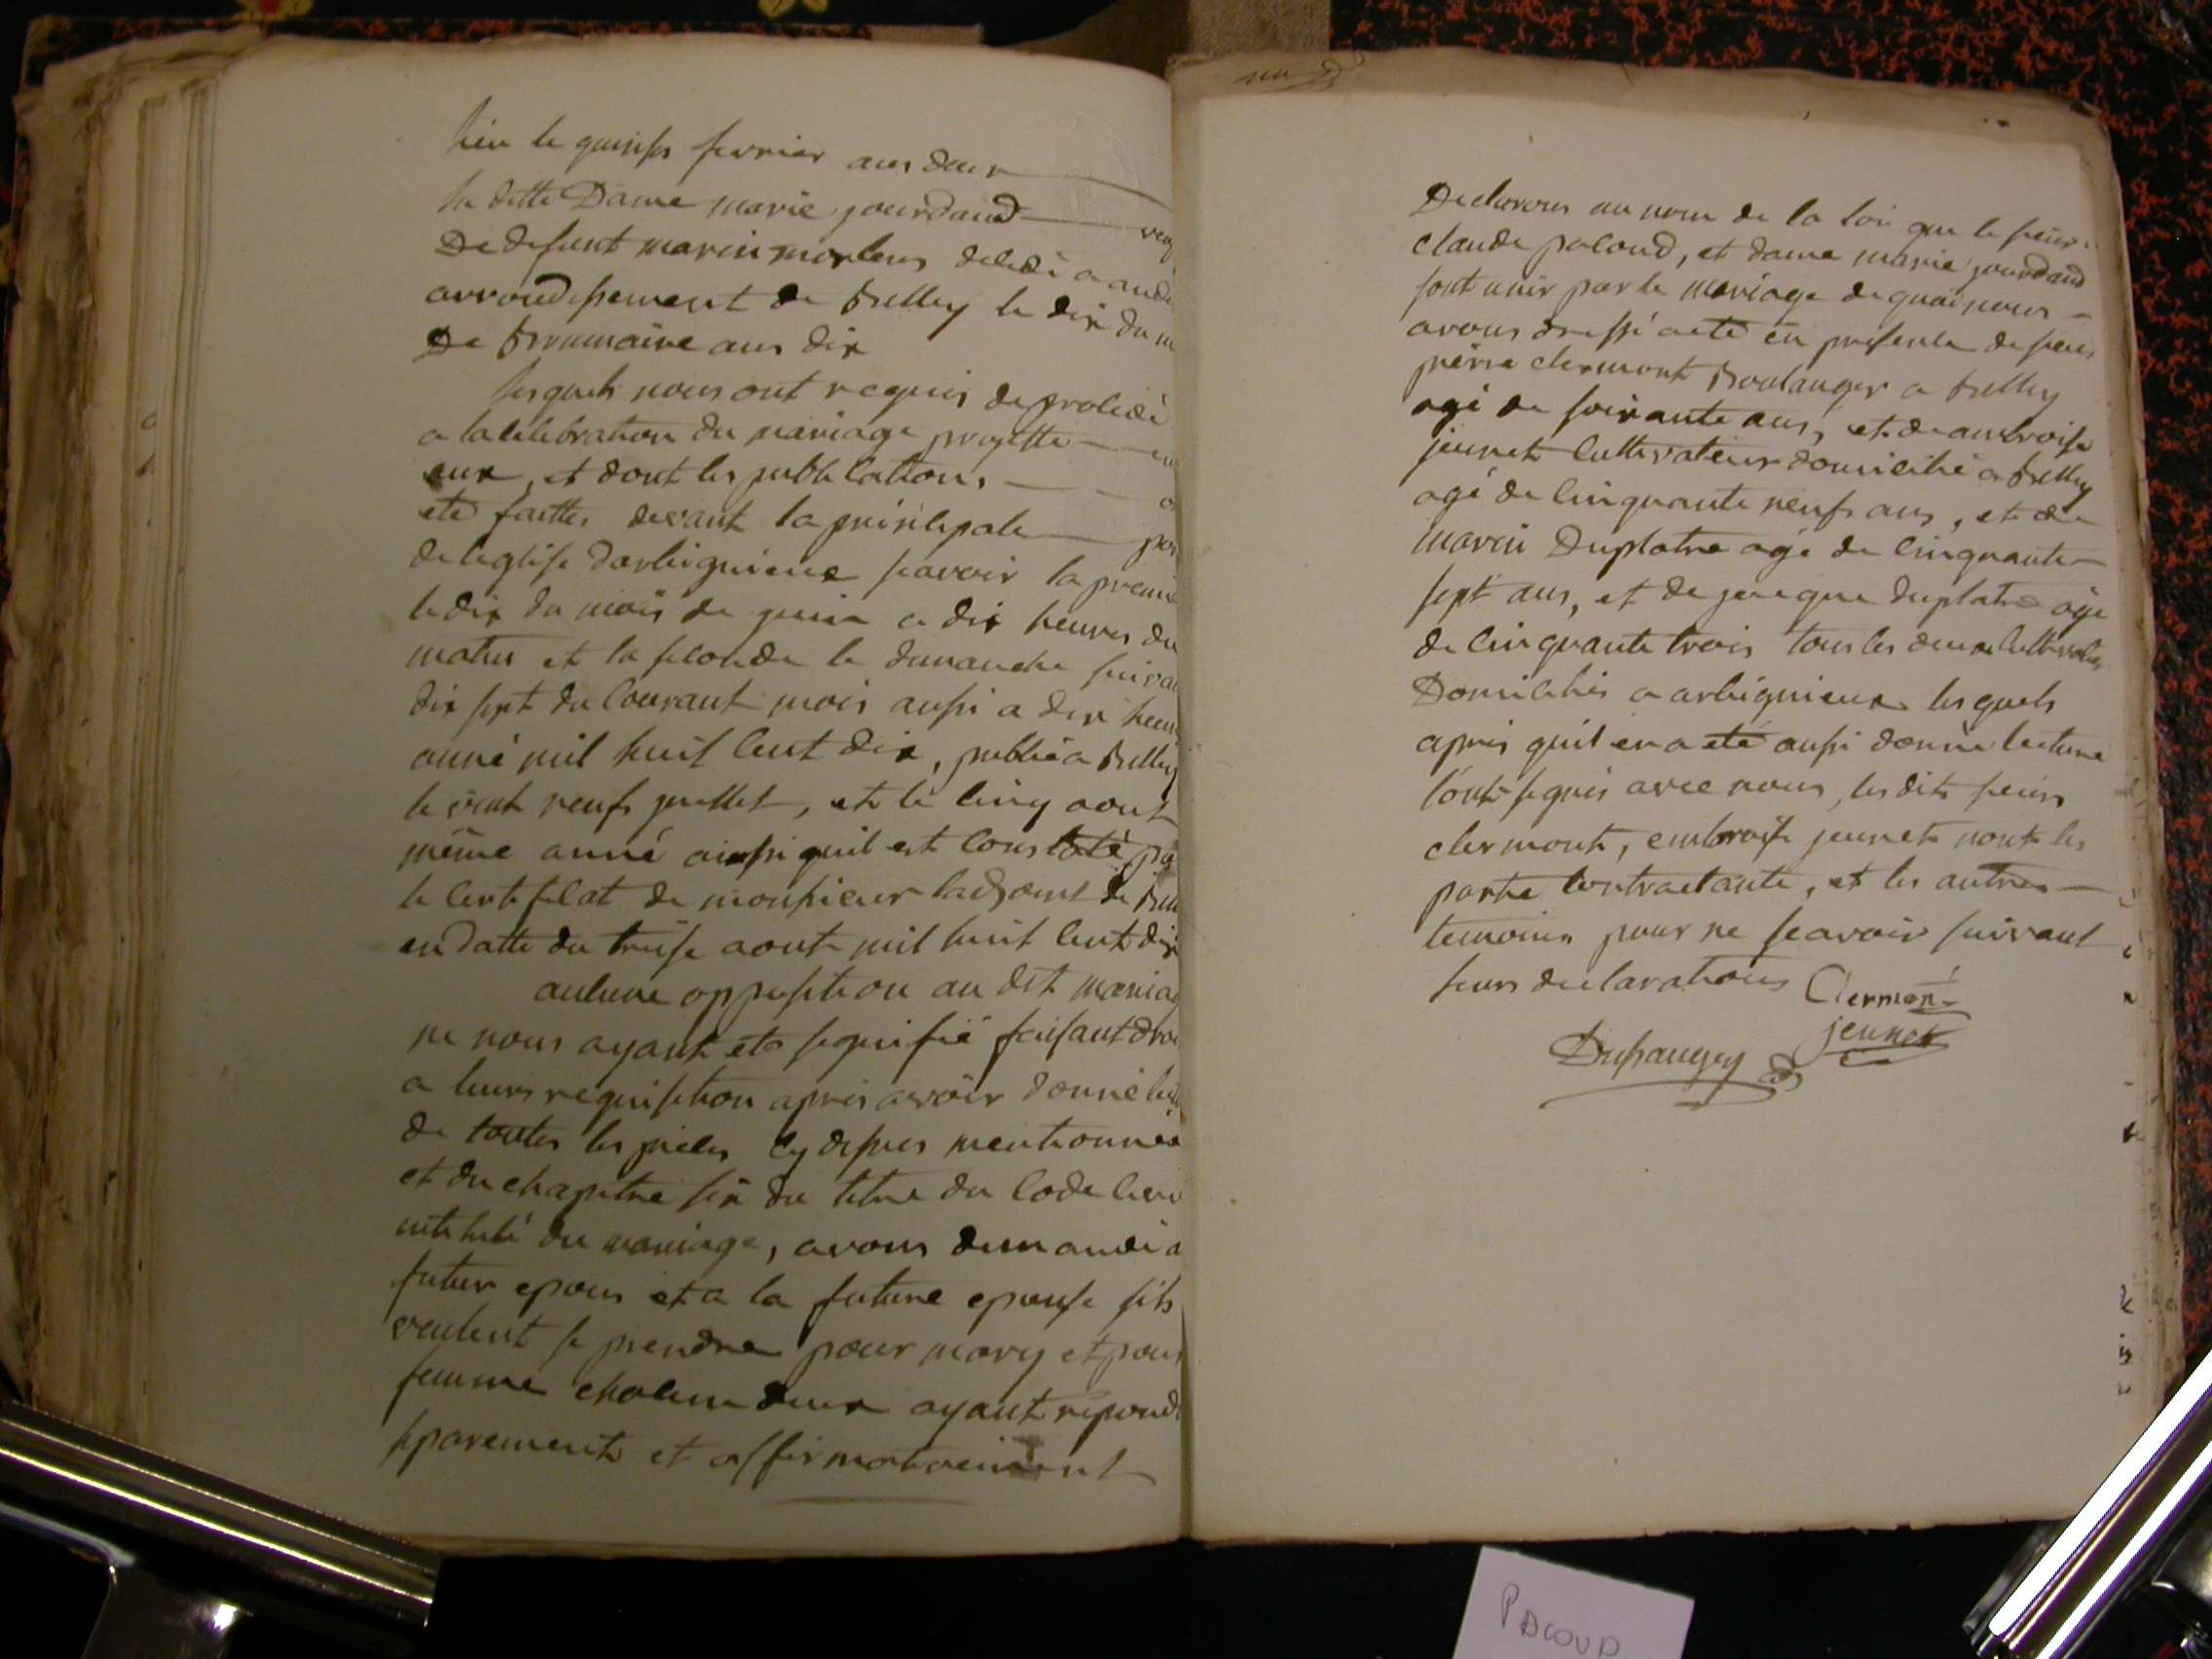 lieu le quinse fevrier ans deux
la ditte Dame marie jourdand
De defunt marin morlens decedé a
arrondissement de Belley le dix du
De Brumaire ans dix
lesquels nous ont requis de procedé
a la celebration du mariage projetté
eux, et dont les publications
eté faittes devant la principale
de leglise darbignieux scavoir la
le dix du mois de juin a dix heures du
matin et la seconde le dimanche
dix sept du courant mois aussi a dix
anné mil huit cent dix, publié a Belley
le vint neufs juillet, et le cinq aout
même anné ainssi quil est constaté
le certificat de monsieur ladjoint de
en datte du treise aout mil huit cent dix
aucune oppesition au dit
ne nous ayant eté signifié faisant
a leurs requisition apres avoir donné
de toutes les pieces cy dessus mentionnés
et du chapitre six du titre du code
intitulé du mariage, avons demandé a
futur epous et a la future epouse sils
veulent se prendre pour mary et pour
femme chacun deux ayant
separement et affirmativement
Declarons au nom de la loi que le sieur
claude pacoud, et dame marie jourdand
sont unir par le mariage de quoi nous
avons dressé acte en presence de sieur
pierre clermont Boulanger a Belley
agé de soixante ans, et de ambroise
jeunet cultivateur domicilié a Belley
agé de cinquante neufs ans, et de
marin Duplatre agé de cinquante
sept ans, et de jacque duplatre agé
de cinquante trois tous les deux
Domiciliés a arbignieux lesquels
apres quil en a eté aussi donné lecture
l'ont signés avec nous, les dits sieurs
clermont, embroise jeunet nont les
partie contractante, et les autres
temoins pour ne scavoir suivant
leurs declarations Clermont
jeunet
Pacoud